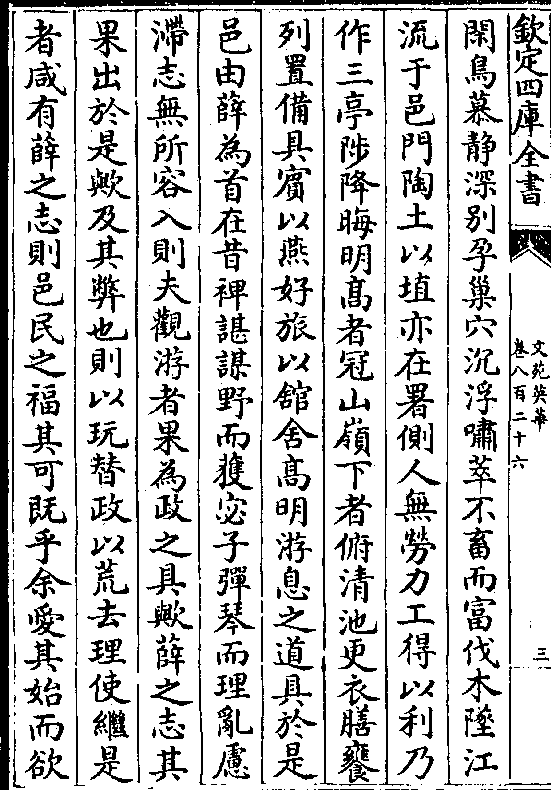 欽定四庫全書
文苑英華
卷八百二十六
三
閑鳥慕静深别孕巢穴沉浮嘯萃不畜而富伐木墜江
流于邑門陶土以埴亦在署側人無勞力工得以利乃
作三亭陟降晦明髙者冠山嶺下者俯清池更衣膳饔
列置備具賓以燕好旅以舘舍髙明游息之道具於是
邑由薛為首在昔裨諶謀野而獲宓子彈琴而理亂慮
滯志無所容入則夫觀游者果為政之具歟薛之志其
果出於是歟及其弊也則以玩替政以荒去理使繼是
者咸有薛之志則邑民之福其可既乎余愛其始而欲